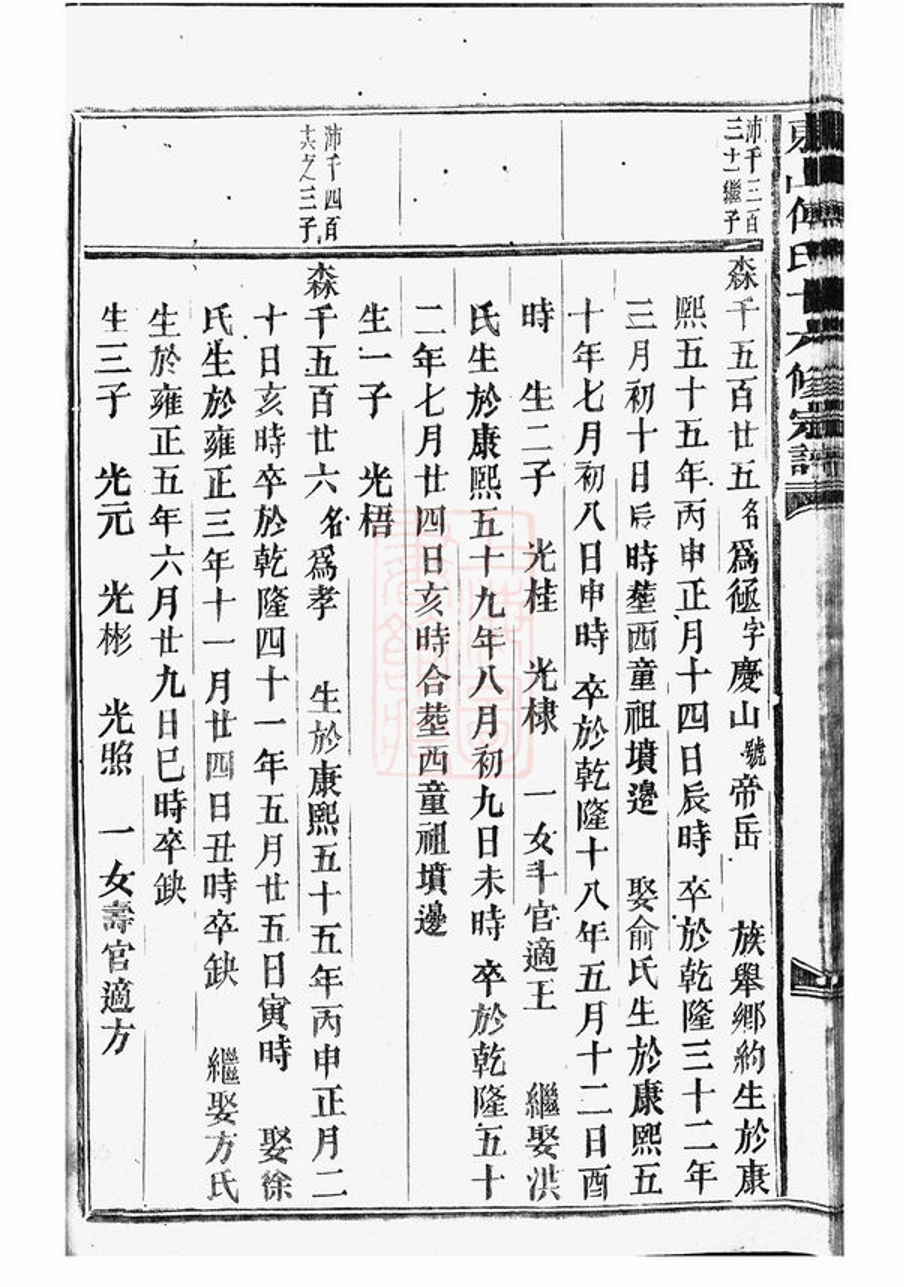 沛千三百
三十一繼子
森千五百廿五名爲極字慶山號帝岳 族舉鄉約生於康
熙五十五年丙申正月十四日辰時 卒於乾隆三十二年
三月初十日辰時塟西童祖墳邊 娶俞氏生於康熙五
十年七月初八日申時 卒於乾隆十八年五月十二日酉
時 生二子 光桂 光棣 一女斗官適王 繼娶洪
氏生於康熙五十九年八月初九日未時 卒於乾隆五十
二年七月廿四日亥時合塟西童祖墳邊
生一子 光梧
沛千四百
之三子
森千五百廿六名爲孝 生於康熙五十五年丙申正月二
十日亥時卒於乾隆四十一年五月廿五日寅時 娶徐
氏生於雍正三年十一月廿四日丑時卒缺 繼娶方氏
生於雍正五年六月廿九日巳時卒缺
生三子 光元 光彬 光照 一女壽官適方